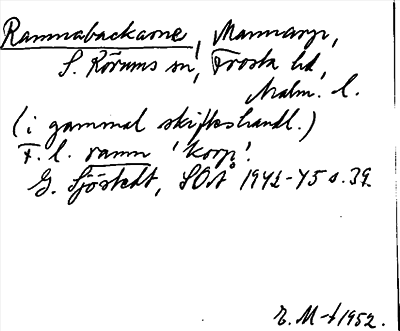 Rammabackarne, Mannarp,
S. Rörums sn, Frosta hd,
Malm. l.
(i gammal skifteshandl.)
F. l. ramn 'korp'.
G. Sjöstedt, SOÅ 1942-45 s. 39.
E. M-t 1952.